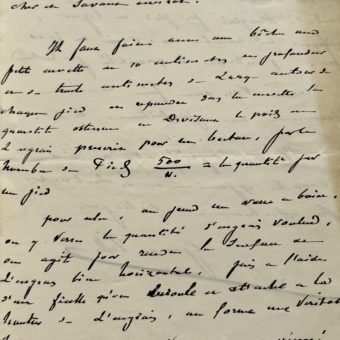 cher et Savant
Il faut faire avec une bêche une
petite cuvette de 10 centimètres de profondeur
et de trente centimètres de Large autour de
chaque pied et répandre dans la cuvette la
quantité obtenue en Divisant le poids
D'engrais prescrit pour un hectare, par le
nombre de Pieds 500/N. = la quantité par
un pied
pour cela, on prend un vase à boire,
on y verse la quantité d'engrais voulue,
on agit pour rendre la Surface de
L'engrais bien horizontale, puis à l'aide
D'une ficelle et attaché à la
hauteur de L'engrais, on forme une Véritable